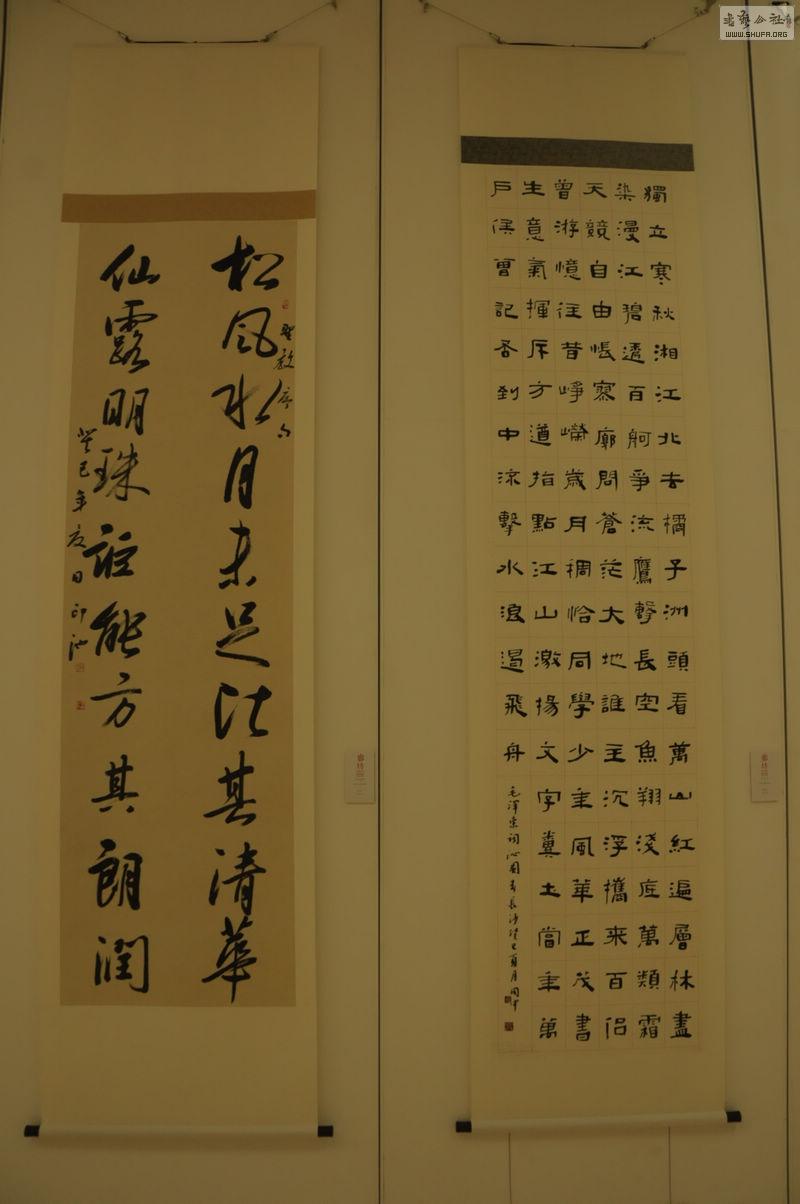 獨立寒秋湘江北去橘子洲頭看萬山紅遍層林盡
染漫江碧透百舸爭流鷹擊長空魚翔淺底萬類霜
天競自由悵寥廓問蒼茫大地誰主沉浮攜来百侶
曾游憶往昔崢嶸歲月稠恰同學少年風華正茂書
生意氣揮斥方遒指點江山激揚文字糞土當年萬
戶侯曾記否到中流擊水浪遏飛舟
毛澤東詞沁園春長沙癸巳夏月
松風水月未足比其清華
聖教序句
仙露明珠詎能方其朗潤
癸巳年夏日
書藝公社
WWW.SHUFA.ORG